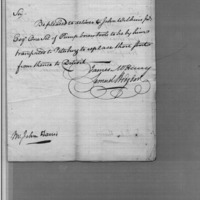 Sir,
Be pleased to deliver to John Wilkins jun.
Esq. One Sett of Pump Augers to be by him
transported to Pittsburg to replace those sent
from thence to Detroit
James McHenry
Samuel Hodgdon
Mr. John Harris